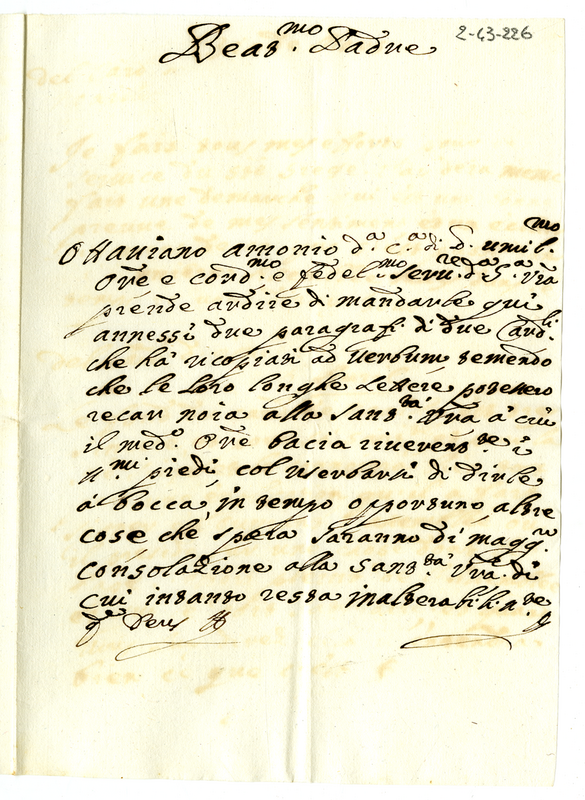 2-43-226
Beat.mo Padre
Ottaviano Antonio d.a C.a di S. umil.mo
Ore e cord.mo e fedel.mo Serv.re d.a S.a Vra
prende ardire di mandarle qui
annessi due paragrafi di due Card.li
che hà ricopiati ad Verbum temendo
che le loro longhe Lettere potessero
recar noia alla Sant.tà Vra à cui
il med.o Ore bacia riverent.te i
S.mi piedi col riserbarsi di dirle
à bocca, in tempo opportuno, altre
cose che spera saranno di magg.re
consolazione alla Sant.tà Vra. di
cui intanto resta inalterabil.n.te